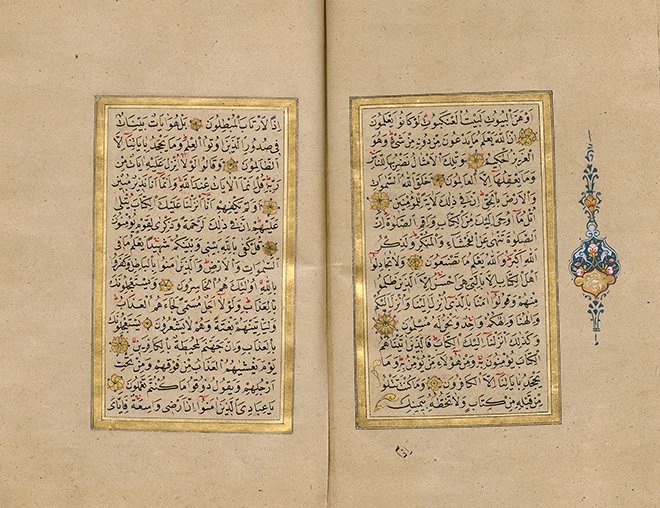 اَوْهَنَ الْبُيُوتِ لَبَيْتُ الْعَنْكَبُوتِ لَوْ كَانُوا يَعْلَمُونَ
اِنَّ اللّٰهَ يَعْلَمُ مَا يَدْعُونَ مِنْ دُونِهِ مِنْ شَيْءٍ وَهُوَ
الْعَزِيزُ الْحَكِيمُ وَتِلْكَ الْاَمْثَالُ نَضْرِبُهَا لِلنَّاسِ
وَمَا يَعْقِلُهَا اِلَّا الْعَالِمُونَ خَلَقَ اللّٰهُ السَّمٰوَاتِ
وَالْاَرْضَ بِالْحَقِّ اِنَّ فِي ذٰلِكَ لَاٰيَةً لِلْمُؤْمِنِينَ
اُتْلُ مَا اُوحِيَ اِلَيْكَ مِنَ الْكِتَابِ وَاَقِمِ الصَّلٰوةَ اِنَّ
الصَّلٰوةَ تَنْهٰى عَنِ الْفَحْشَاءِ وَالْمُنْكَرِ وَلَذِكْرُ
اللّٰهِ اَكْبَرُ وَاللّٰهُ يَعْلَمُ مَا تَصْنَعُونَ وَلَا تُجَادِلُوا
اَهْلَ الْكِتَابِ اِلَّا بِالَّتِي هِيَ اَحْسَنُ اِلَّا الَّذِينَ ظَلَمُوا
مِنْهُمْ وَقُولُوا اٰمَنَّا بِالَّذِي اُنْزِلَ اِلَيْنَا وَاُنْزِلَ اِلَيْكُمْ
وَاِلٰهُنَا وَاِلٰهُكُمْ وَاحِدٌ وَنَحْنُ لَهُ مُسْلِمُونَ
وَكَذٰلِكَ اَنْزَلْنَا اِلَيْكَ الْكِتَابَ فَالَّذِينَ اٰتَيْنَاهُمُ
الْكِتَابَ يُؤْمِنُونَ بِهِ وَمِنْ هٰؤُلَاءِ مَنْ يُؤْمِنُ بِهِ وَمَا
يَجْحَدُ بِاٰيَاتِنَا اِلَّا الْكَافِرُونَ وَمَا كُنْتَ تَتْلُوا
مِنْ قَبْلِهِ مِنْ كِتَابٍ وَلَا تَخُطُّهُ بِيَمِينِكَ
اِذًا لَارْتَابَ الْمُبْطِلُونَ بَلْ هُوَ اٰيَاتٌ بَيِّنَاتٌ
فِي صُدُورِ الَّذِينَ اُوتُوا الْعِلْمَ وَمَا يَجْحَدُ بِاٰيَاتِنَا اِلَّا
الظَّالِمُونَ وَقَالُوا لَوْلَا اُنْزِلَ عَلَيْهِ اٰيَاتٌ مِنْ
رَبِّهِ قُلْ اِنَّمَا الْاٰيَاتُ عِنْدَ اللّٰهِ وَاِنَّمَا اَنَا نَذِيرٌ مُبِينٌ
اَوَلَمْ يَكْفِهِمْ اَنَّا اَنْزَلْنَا عَلَيْكَ الْكِتَابَ يُتْلٰى
عَلَيْهِمْ اِنَّ فِي ذٰلِكَ لَرَحْمَةً وَذِكْرٰى لِقَوْمٍ يُؤْمِنُونَ
قُلْ كَفٰى بِاللّٰهِ بَيْنِي وَبَيْنَكُمْ شَهِيدًا يَعْلَمُ مَا فِي
السَّمٰوَاتِ وَالْاَرْضِ وَالَّذِينَ اٰمَنُوا بِالْبَاطِلِ وَكَفَرُوا
بِاللّٰهِ اُولٰئِكَ هُمُ الْخَاسِرُونَ وَيَسْتَعْجِلُونَكَ
بِالْعَذَابِ وَلَوْلَا اَجَلٌ مُسَمًّى لَجَاءَهُمُ الْعَذَابُ
وَلَيَأْتِيَنَّهُمْ بَغْتَةً وَهُمْ لَا يَشْعُرُونَ يَسْتَعْجِلُونَكَ
بِالْعَذَابِ وَاِنَّ جَهَنَّمَ لَمُحِيطَةٌ بِالْكَافِرِينَ
يَوْمَ يَغْشٰيهُمُ الْعَذَابُ مِنْ فَوْقِهِمْ وَمِنْ تَحْتِ
اَرْجُلِهِمْ وَيَقُولُ ذُوقُوا مَا كُنْتُمْ تَعْمَلُونَ
يَا عِبَادِيَ الَّذِينَ اٰمَنُوا اِنَّ اَرْضِي وَاسِعَةٌ فَاِيَّايَ